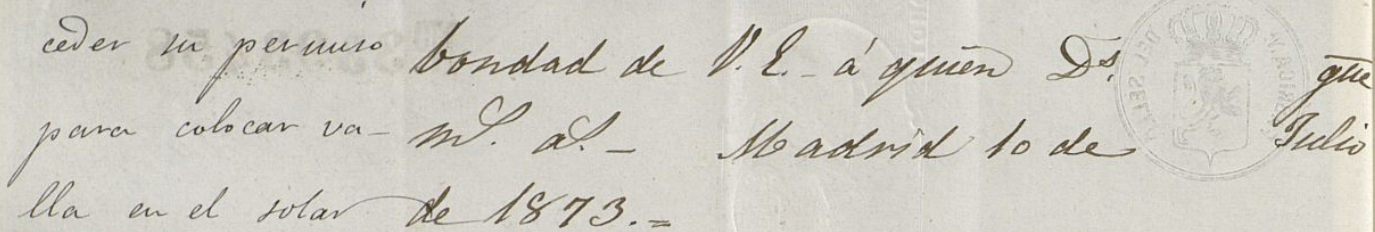 ceder su permiso
para colocar va-
lla en el solar
bondad de V. E. - á quien Ds. gue
ms. as. - Madrid 10 de Julio
de 1873. =